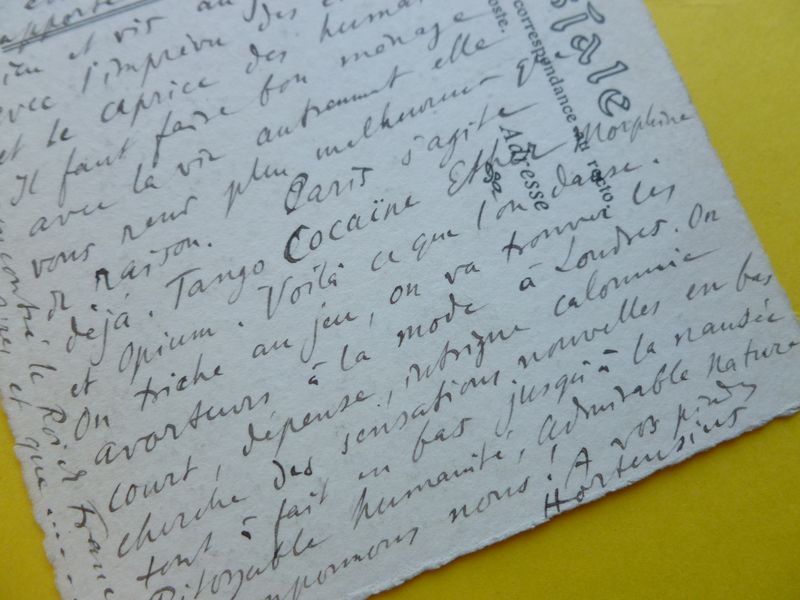 et vis au
avec l'imprévu des
et le caprice des humai
Il faut faire bon ménage
avec la vie autrement elle
vous rend plus malheureux q
de raison. Paris s'agite
déjà. Tango Cocaïne Ether Morphine
et Opium. Voilà ce que l'on danse.
On triche au jeu, on va trouver les
avorteurs à la mode à Londres. On
court, dépense, intrigue calomnie
cherche des sensations nouvelles en bas
tout à fait en bas jusqu'à la nausée
Pitoyable humanité, admirable Nature
nous! A vos pieds
Hortensius
tale
correspondance au recto.
Adresse
le Roi de France
et que